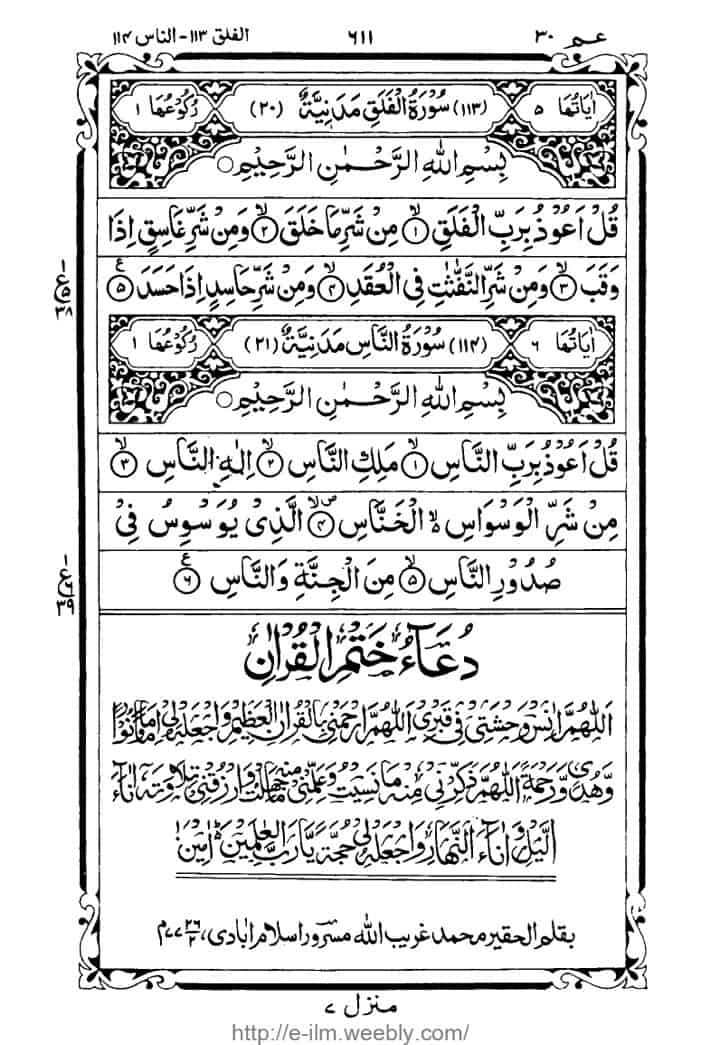 عـم ٣٠ ٦١١ الفلق ١١٣-الناس ١١٤
اٰيَاتُهَا ٥ (١١٣) سُوْرَةُ الْفَلَقِ مَدَنِيَّةٌ (٢٠) رُكُوْعُهَا ١
بِسْمِ اللّٰهِ الرَّحْمٰنِ الرَّحِيْمِ
قُلْ اَعُوْذُ بِرَبِّ الْفَلَقِ ۙ‏﴿۱﴾ مِنْ شَرِّ مَا خَلَقَ ۙ‏﴿۲﴾ وَمِنْ شَرِّ غَاسِقٍ اِذَا
وَقَبَ ۙ‏﴿۳﴾ وَمِنْ شَرِّ النَّفّٰثٰتِ فِي الْعُقَدِ ۙ‏﴿۴﴾ وَمِنْ شَرِّ حَاسِدٍ اِذَا حَسَدَ ﴿۵﴾
١ ع ٥ ٣٨
اٰيَاتُهَا ٦ (١١٤) سُوْرَةُ النَّاسِ مَدَنِيَّةٌ (٢١) رُكُوْعُهَا ١
بِسْمِ اللّٰهِ الرَّحْمٰنِ الرَّحِيْمِ
قُلْ اَعُوْذُ بِرَبِّ النَّاسِ ۙ‏﴿۱﴾ مَلِكِ النَّاسِ ۙ‏﴿۲﴾ اِلٰهِ النَّاسِ ۙ‏﴿۳﴾
مِنْ شَرِّ الْوَسْوَاسِ ۙ الْخَنَّاسِ ۙ‏﴿۴﴾ الَّذِيْ يُوَسْوِسُ فِيْ
صُدُوْرِ النَّاسِ ۙ‏﴿۵﴾ مِنَ الْجِنَّةِ وَالنَّاسِ ﴿۶﴾
١ ع ٦ ٣٩
دُعَآءُ خَتْمِ الْقُرْاٰنِ
اَللّٰهُمَّ اٰنِسْ وَحْشَتِيْ فِيْ قَبْرِيْ اَللّٰهُمَّ ارْحَمْنِيْ بِالْقُرْاٰنِ الْعَظِيْمِ وَاجْعَلْهُ لِيْ اِمَامًا وَّنُوْرًا
وَّهُدًى وَّرَحْمَةً اَللّٰهُمَّ ذَكِّرْنِيْ مِنْهُ مَا نَسِيْتُ وَعَلِّمْنِيْ مِنْهُ مَا جَهِلْتُ وَارْزُقْنِيْ تِلَاوَتَهٗ اٰنَآءَ
الَّيْلِ وَاٰنَآءَ النَّهَارِ وَاجْعَلْهُ لِيْ حُجَّةً يَّارَبَّ الْعٰلَمِيْنَ اٰمِيْن
بقلم الحقير محمد غريب الله مسرور اسلام اٰبادی، ٢٦/٢ ٧٧م
منزل ٧
http://e-ilm.weebly.com/